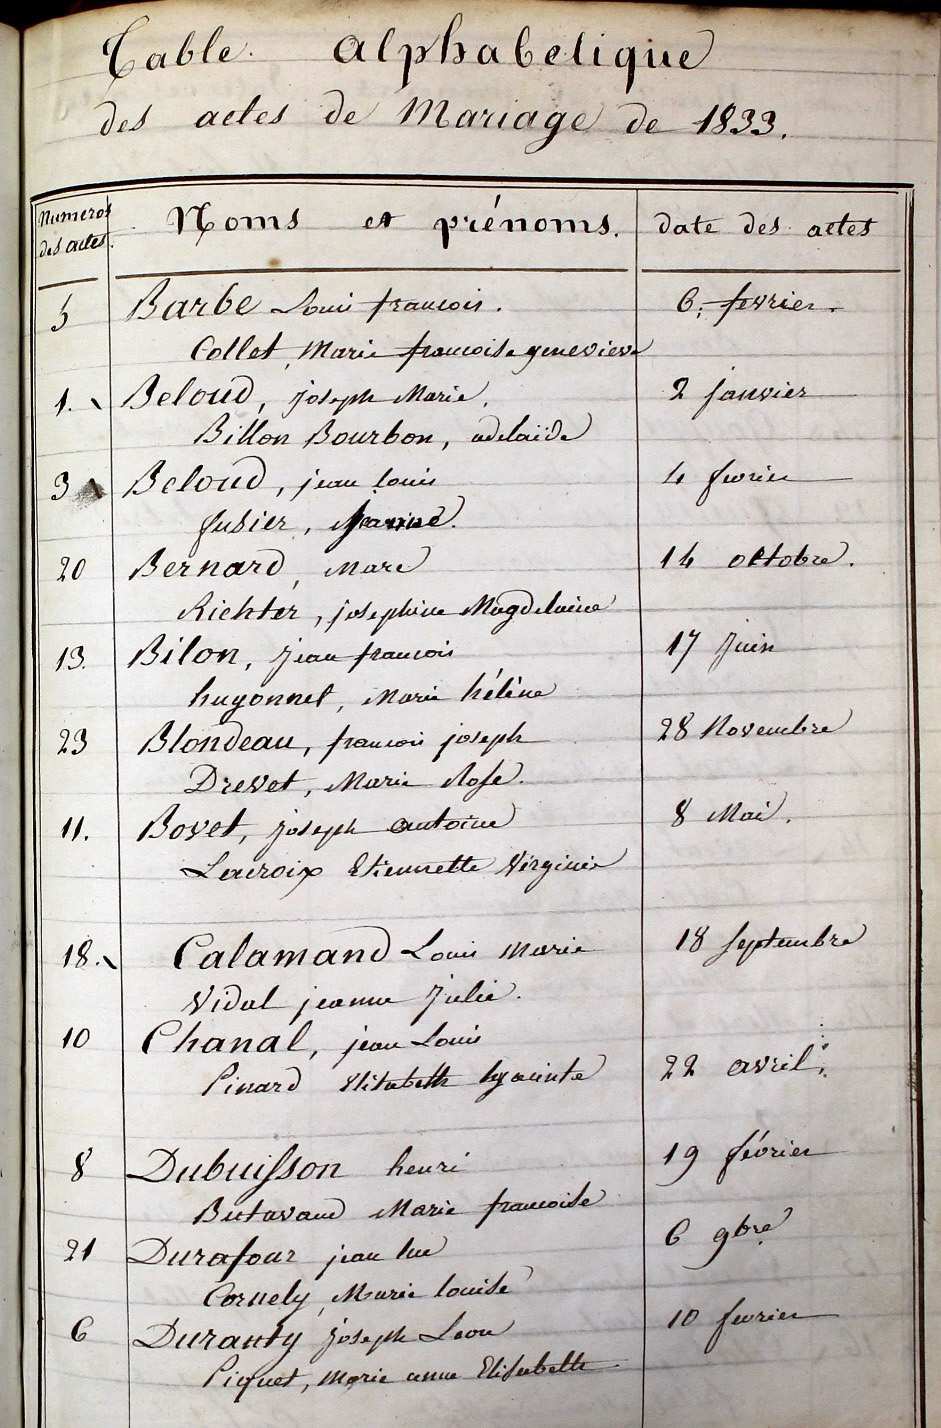 Table alphabetique
des actes de Mariage de 1833.
Numeros des actes. Noms et prénoms. date des actes
5 Barbe Louis francois. 6. fevrier.
Collet, Marie francoise genevieve
1. Beloud, joseph Marie, 2 janvier
Billon Bourbon, adelaïde
3 Beloud, jean louis 4 fevrier
fusier,
20 Bernard, Marc 14 octobre.
Richter, josephine Magdelaine
13. Bilon, Jean francois 17 Juin
hugonnet, Marie hélène
23 Blondeau, francois joseph 28 Novembre
Drevet, Marie Rose.
11. Bovet, joseph antoine 8 Mai.
Lacroix Etiennette Virginie
18. Calamand Louis Marie 18 septembre
Vidal jeanne Julie.
10 Chanal, jean Louis
Pinard Elisabeth hyacinte 22 avril.
8 Dubuisson henri 19 février
Butavand Marie francoise
21 Durafour jean luc 6 9bre
Cornely, Marie louise
6 Duranty joseph Leon 10 fevrier
Piquet, Marie anne Elisabeth